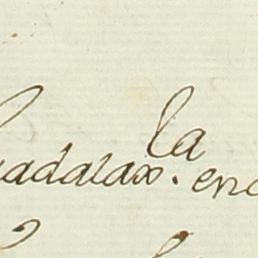 la
uadalax. en